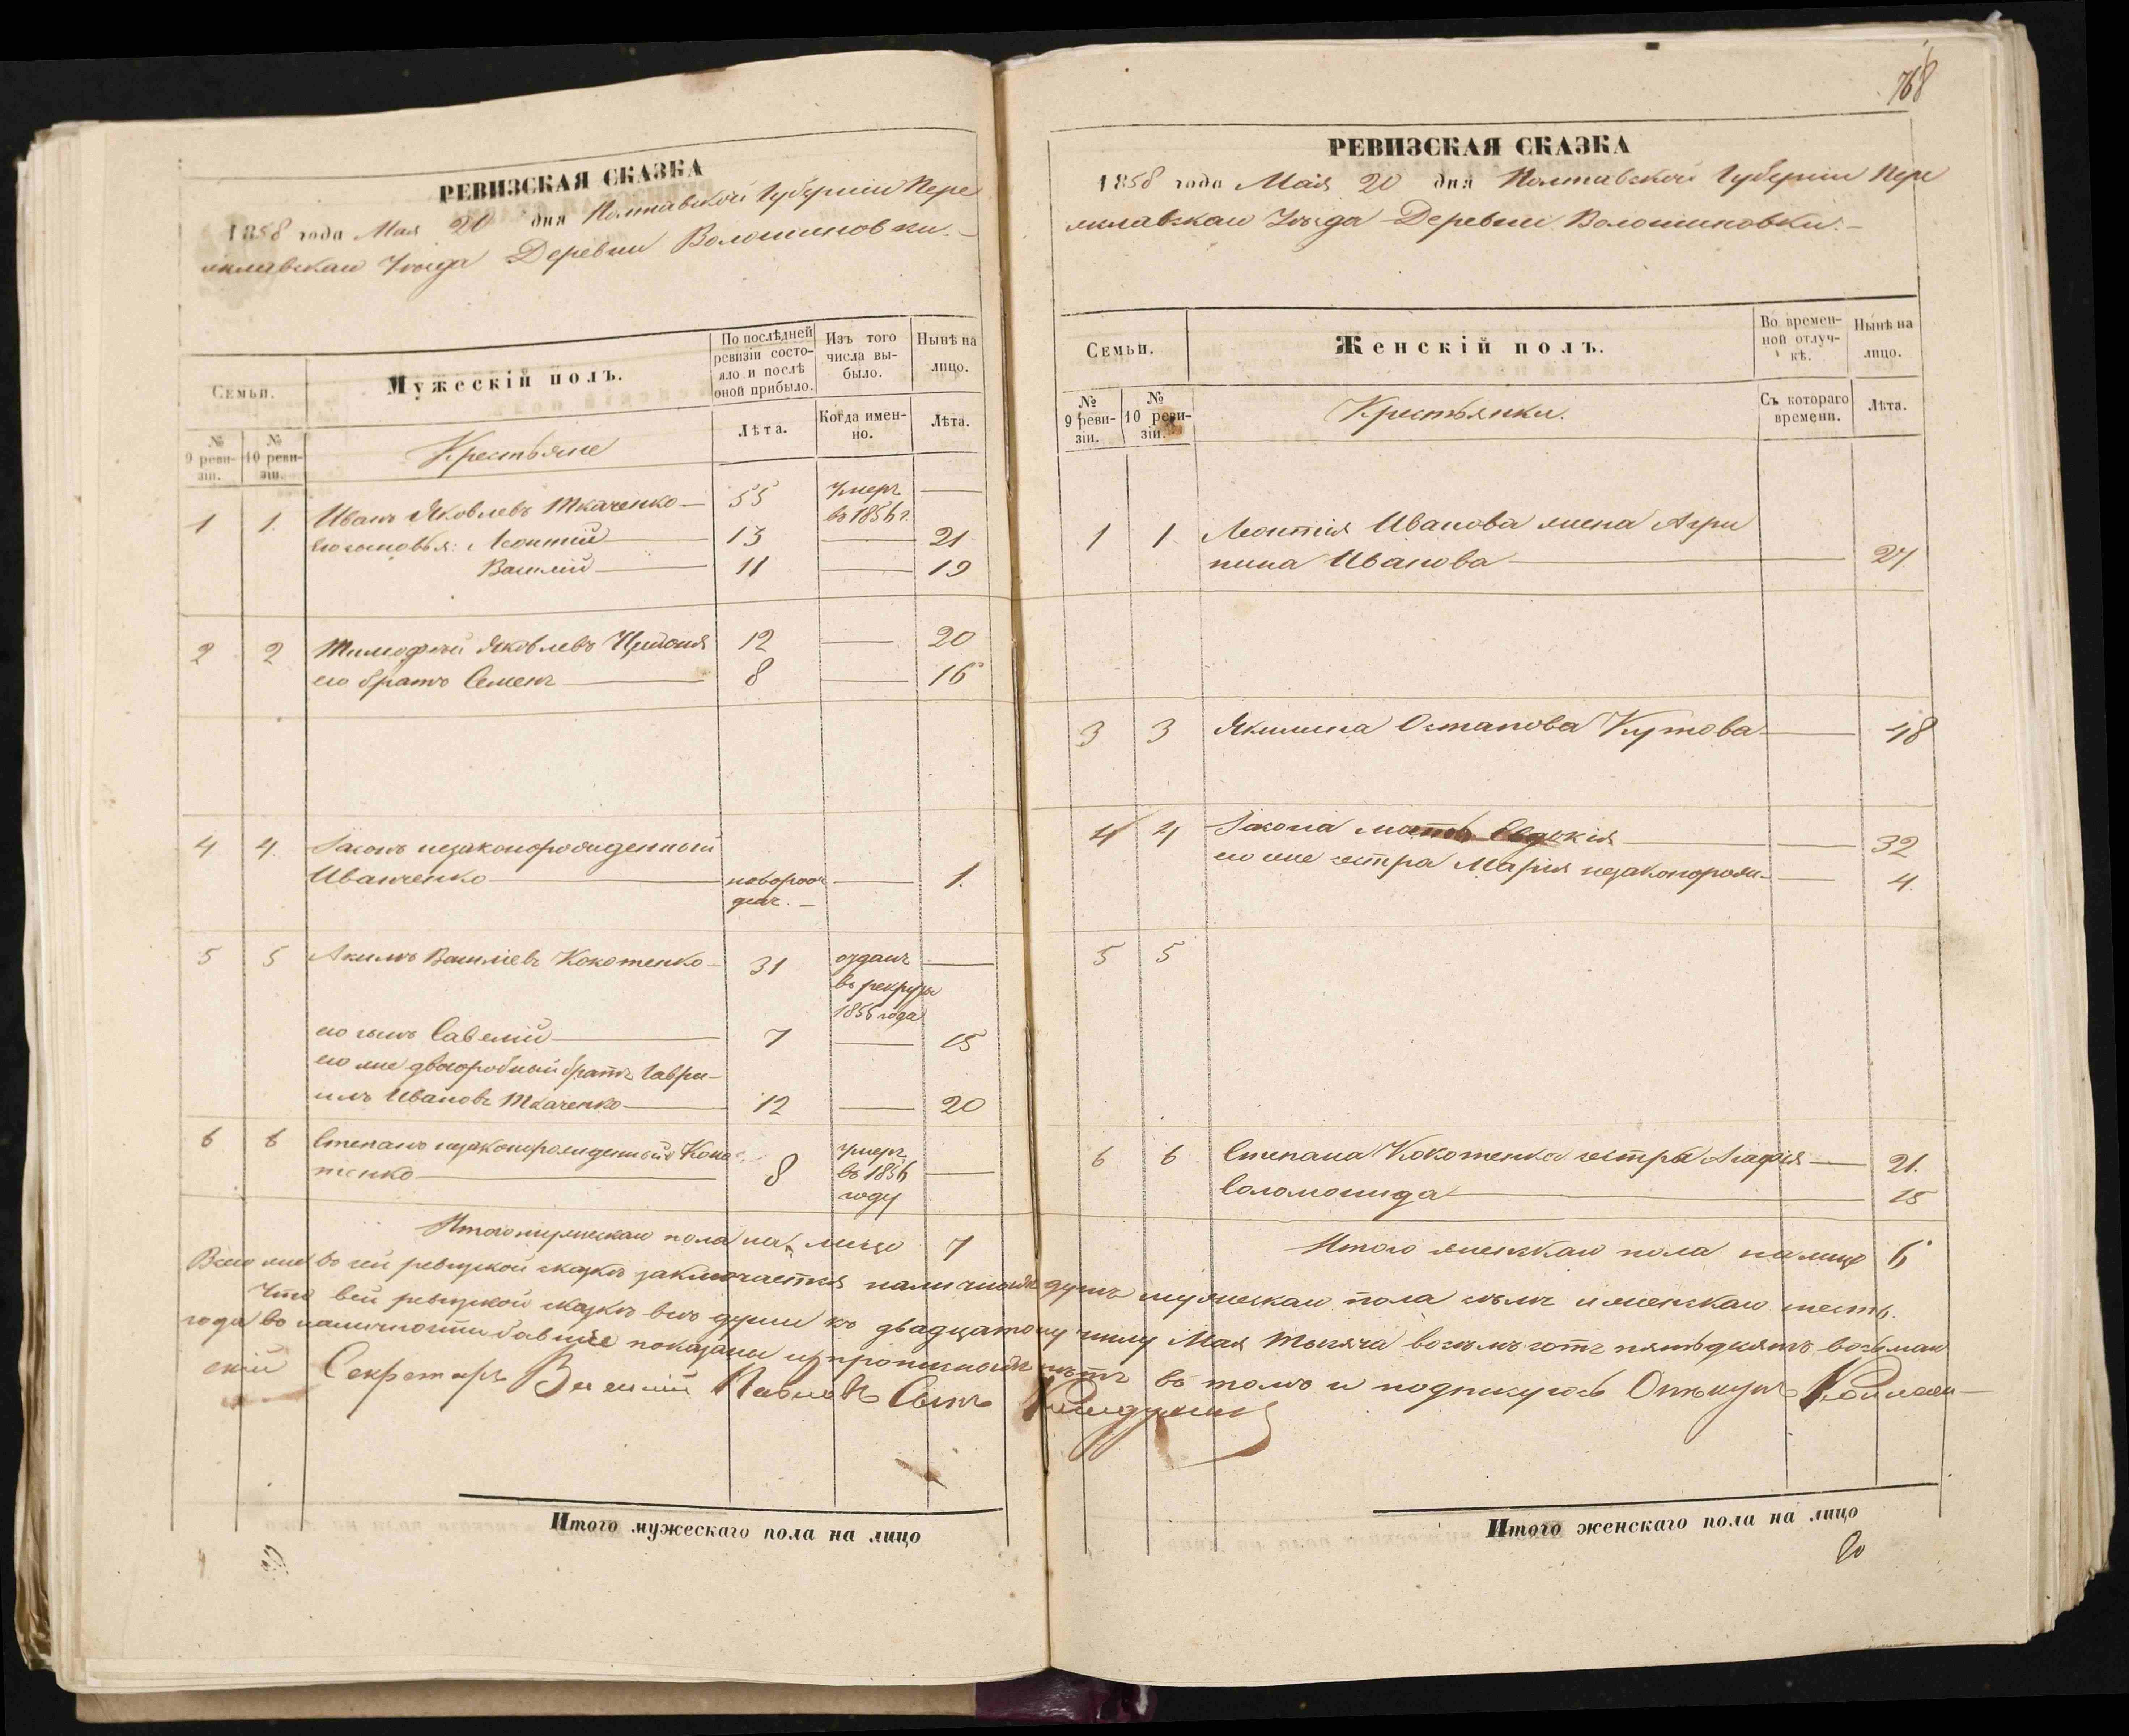 РЕВИЗСКАЯ СКАЗКА
1858 года Мая 20 дня Полтавской Губерніи Пере
яславскаго Уѣзда Деревни Волошиновки.
Семьи.
Мужескій полъ.
По послѣдней ревизіи состояло и послѣ оной прибыло.
Изъ того числа выбыло.
Нынѣ на лицо.
№ 9 ревизіи.
№ 10 ревизіи.
Крестьяне
Лѣта.
Когда именно.
Лѣта.
1 1. Иванъ Яковлевъ Ткаченко 55 умеръ —
въ 1856 г.
его сыновья: Леонтій 13 — 21
Василій 11 — 19
2 2 Тимофей Яковлевъ 12 — 20
его братъ Семенъ 8 — 16
4 4. незаконорожденный
Иванченко новорож 1.
ден.
5 5 Акимъ Василіевъ Кокотенко 31 отданъ —
въ рекруты
года
его сынъ Савелій 7 — 15
его же двоюродный братъ Гаври-
илъ Ивановъ Ткаченко 12 — 20
6 6 Степанъ незаконорожденный Коко
тенко 8 умеръ —
въ 1856
году
Итого мужескаго пола на лицо 7
768
РЕВИЗСКАЯ СКАЗКА
1858 года Мая 20 дня Полтавской Губерніи Пере
яславскаго Уѣзда Деревни Волошиновки.
Семьи.
Женскій полъ.
Во временной отлучкѣ.
Нынѣ на лицо.
№ 9 ревизіи.
№ 10 ревизіи.
Крестьянки.
Съ котораго времени.
Лѣта.
1 1 Леонтія Иванова жена Агри
пина Иванова 27.
3 3 Якилина Остапова Кутова 48
4 4 мать Евдокія 32
его же сестра Марія незаконорож- 4.
5 5
6 6 Степана Кокотенка сестры Агафія 21.
Соломонида 15
Итого женскаго пола на лицо 6
Всего же во сей ревизской сказкѣ заключается наличныхъ душъ мужескаго пола семь и женскаго шесть.
Что въ сей ревизской сказкѣ всѣ души къ двадцатому числу Мая тысяча восемъ сотъ пятьдесятъ восьмаго
года во наличности бывшіе показаны и прописныхъ нѣтъ въ томъ и подпишусь Опекунъ
скій Секретарь Павловъ Сынъ
Итого мужескаго пола на лицо
Итого женскаго пола на лицо